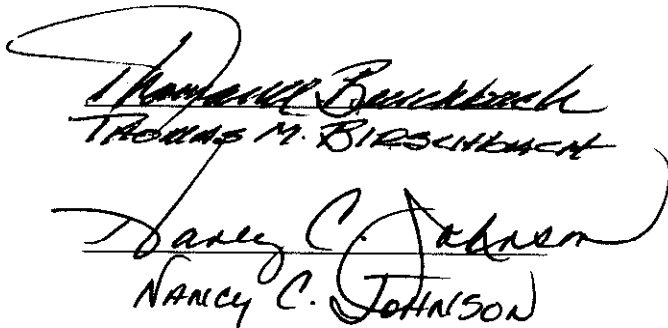 Thomas M Birschbach
THOMAS M. BIRSCHBACH
Nancy C. Johnson
NANCY C. JOHNSON